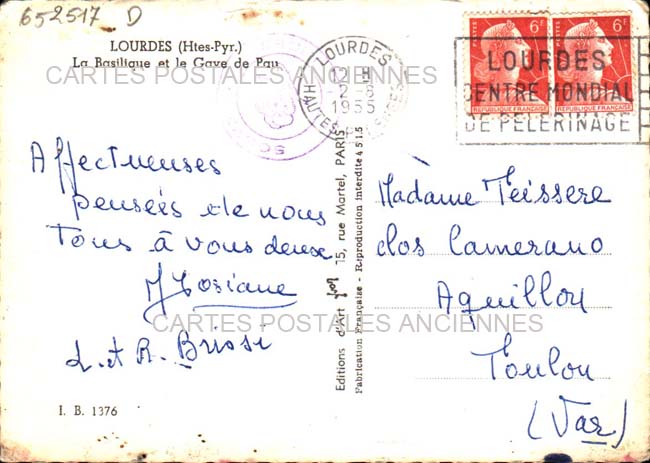 652517 D
LOURDES (Htes-Pyr.)
La Basilique et le Gave de Pau
CARTES POSTALES ANCIENNES
LOURDES
12 H
2-8
1955
HAUTES PYRENEES
6F 6F
REPUBLIQUE FRANÇAISE REPUBLIQUE FRANÇAISE
LOURDES
CENTRE MONDIAL
DE PELERINAGE
Affectueuses
pensées de nous
Tous à vous deux
Josiane
L. et R. Brissi
I. B. 1376
Editions d'Art yvon 15, rue Martel, PARIS
Fabrication Française - Reproduction interdite 4 5 1 5
Madame Teissere
clos Camerano
Aquillou
Toulon
(Var)
CARTES POSTALES ANCIENNES